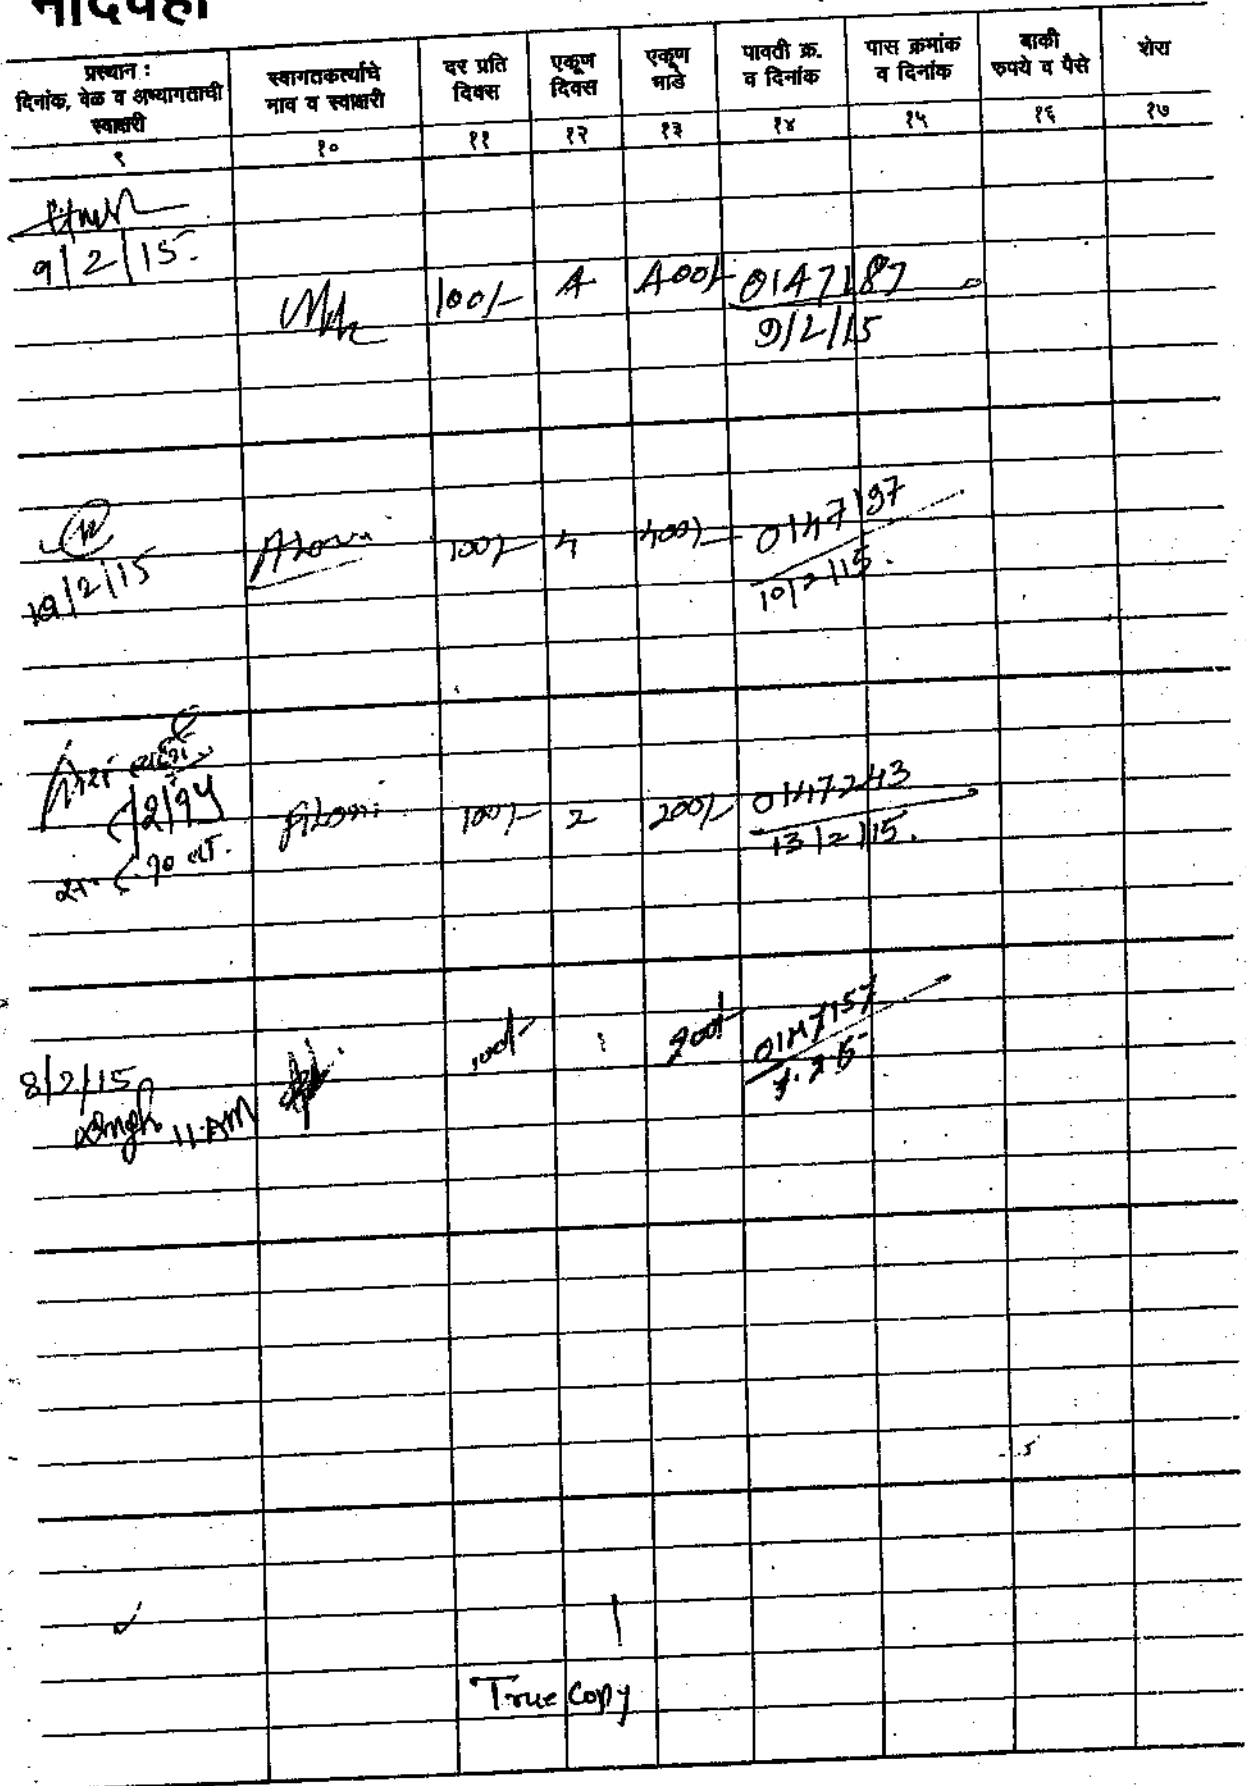 नोंदवही
प्रस्थान : दिनांक, वेळ व अभ्यागताची स्वाक्षरी
स्वागतकर्त्याचे नाव व स्वाक्षरी
दर प्रति दिवस
एकूण दिवस
एकूण भाडे
पावती क्र. व दिनांक
पास क्रमांक व दिनांक
बाकी रुपये व पैसे
शेरा
९ १० ११ १२ १३ १४ १५ १६ १७
9/2/15.
100/- 4 400/- 0147187
9/2/15
10/2/15
100/- 4 400/- 0147197
10/2/15.
८/2/१५
100/- 2 200/- 0147243
13/2/15.
८.१० वा.
100/- 0147157
8/2/15
Singh 11 AM
True Copy